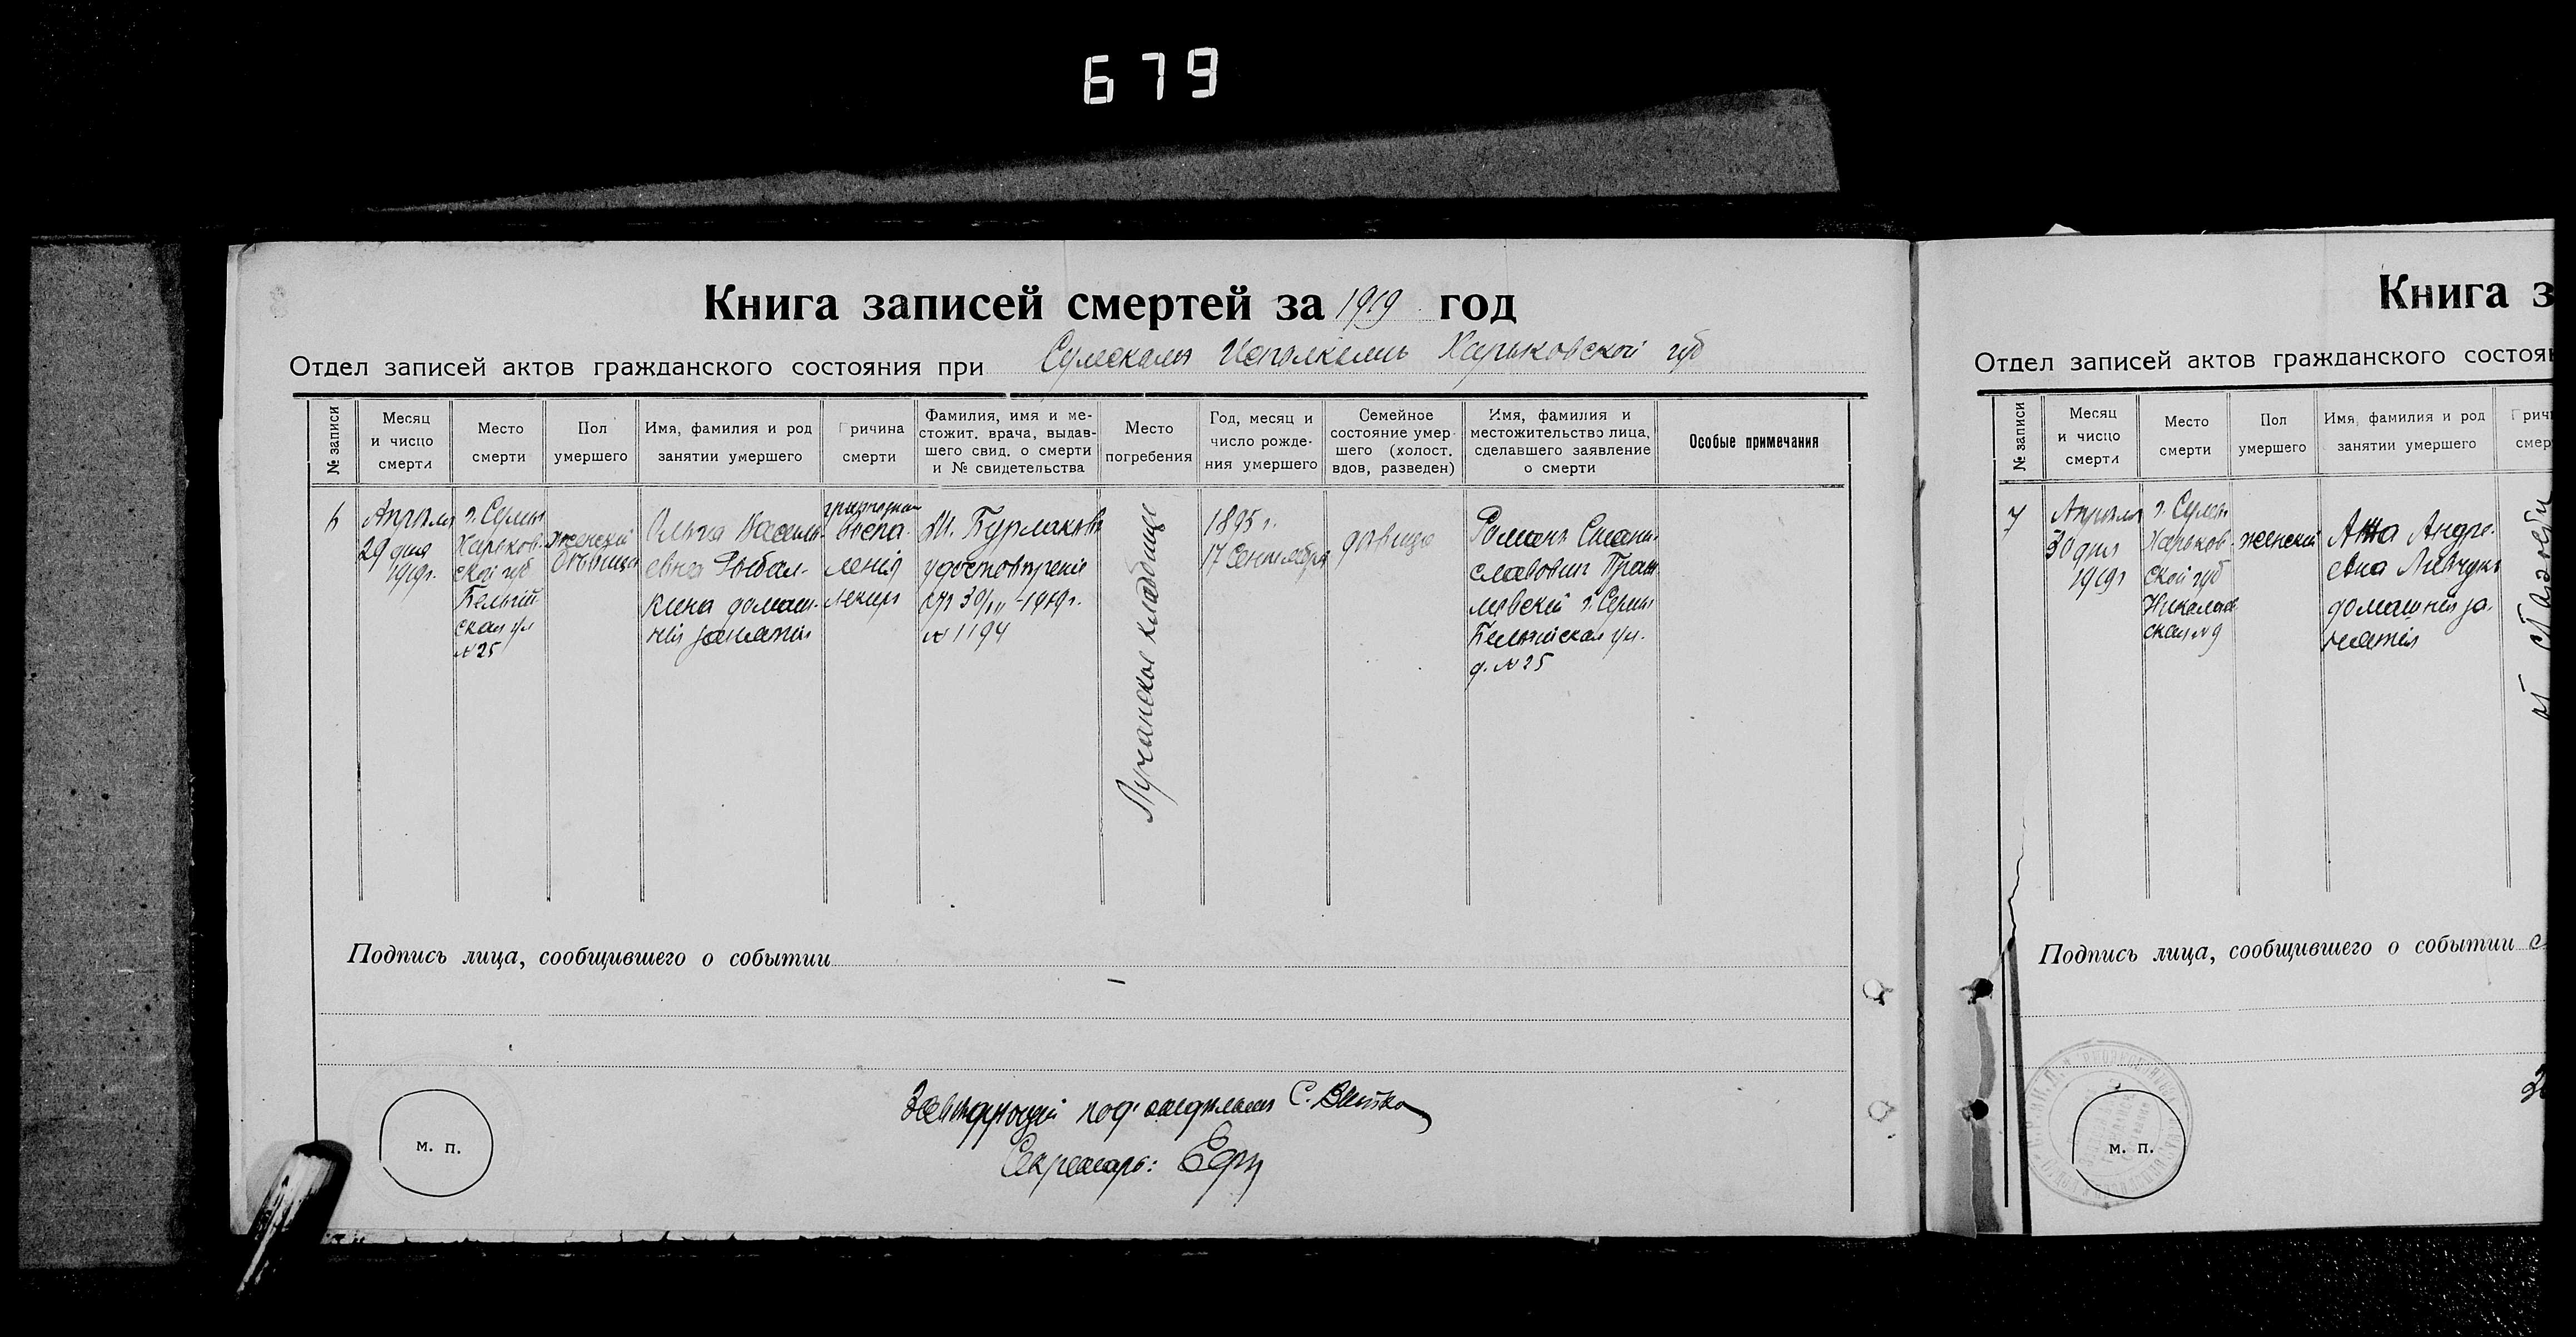 679
Книга записей смертей за 1919 год
Отдел записей актов гражданского состояния при Сумскомъ Исполкомѣ Харьковской губ
№ записи
Месяц
и число
смерти
Место
смерти
Пол
умершего
Имя, фамилия и род
занятии умершего
Причина
смерти
Фамилия, имя и ме-
стожит. врача, выдав-
шего свид. о смерти
и № свидетельства
Место
погребения
Год, месяц и
число рожде-
ния умершего
Семейное
состояние умер
шего (холост.
вдов, разведен)
Имя, фамилия и
местожительство лица,
сделавшего заявление
о смерти
Особые примечания
6
Апрѣля
29 дня
1919г.
г. Сумы
Харьков-
ской губ
Бельгій
ская ул
№ 25
женскій
дѣвица
Ольга Василь-
евна Рыбал-
кина домаш-
нія занятія
воспа-
ленія
легких
М. Бурлаковъ
удостовѣреніе
от 30/IV-1919г.
№ 1194
Лучанское кладбище
1895 г.
17 Сентября
дѣвица
Романъ Стани-
славович
г. Сумы
Бельгійская ул.
д. № 25
Подпись лица, сообщившего о событии
Завѣдующій подотдѣломъ С. Витко
Секретарь:
м. п.
Книга з
Отдел записей актов гражданского состоян
№ записи
Месяц
и число
смерти
Место
смерти
Пол
умершего
Имя, фамилия и род
занятии умершего
Прич
смер
7
Апрѣля
30 дня
1919г
г. Сумы
Харьков-
ской губ
Николаев
ская № 9
женскій
Анна Андре-
евна Левчукъ
домашнія за-
нятія
Подпись лица, сообщившего о событии
м. п.